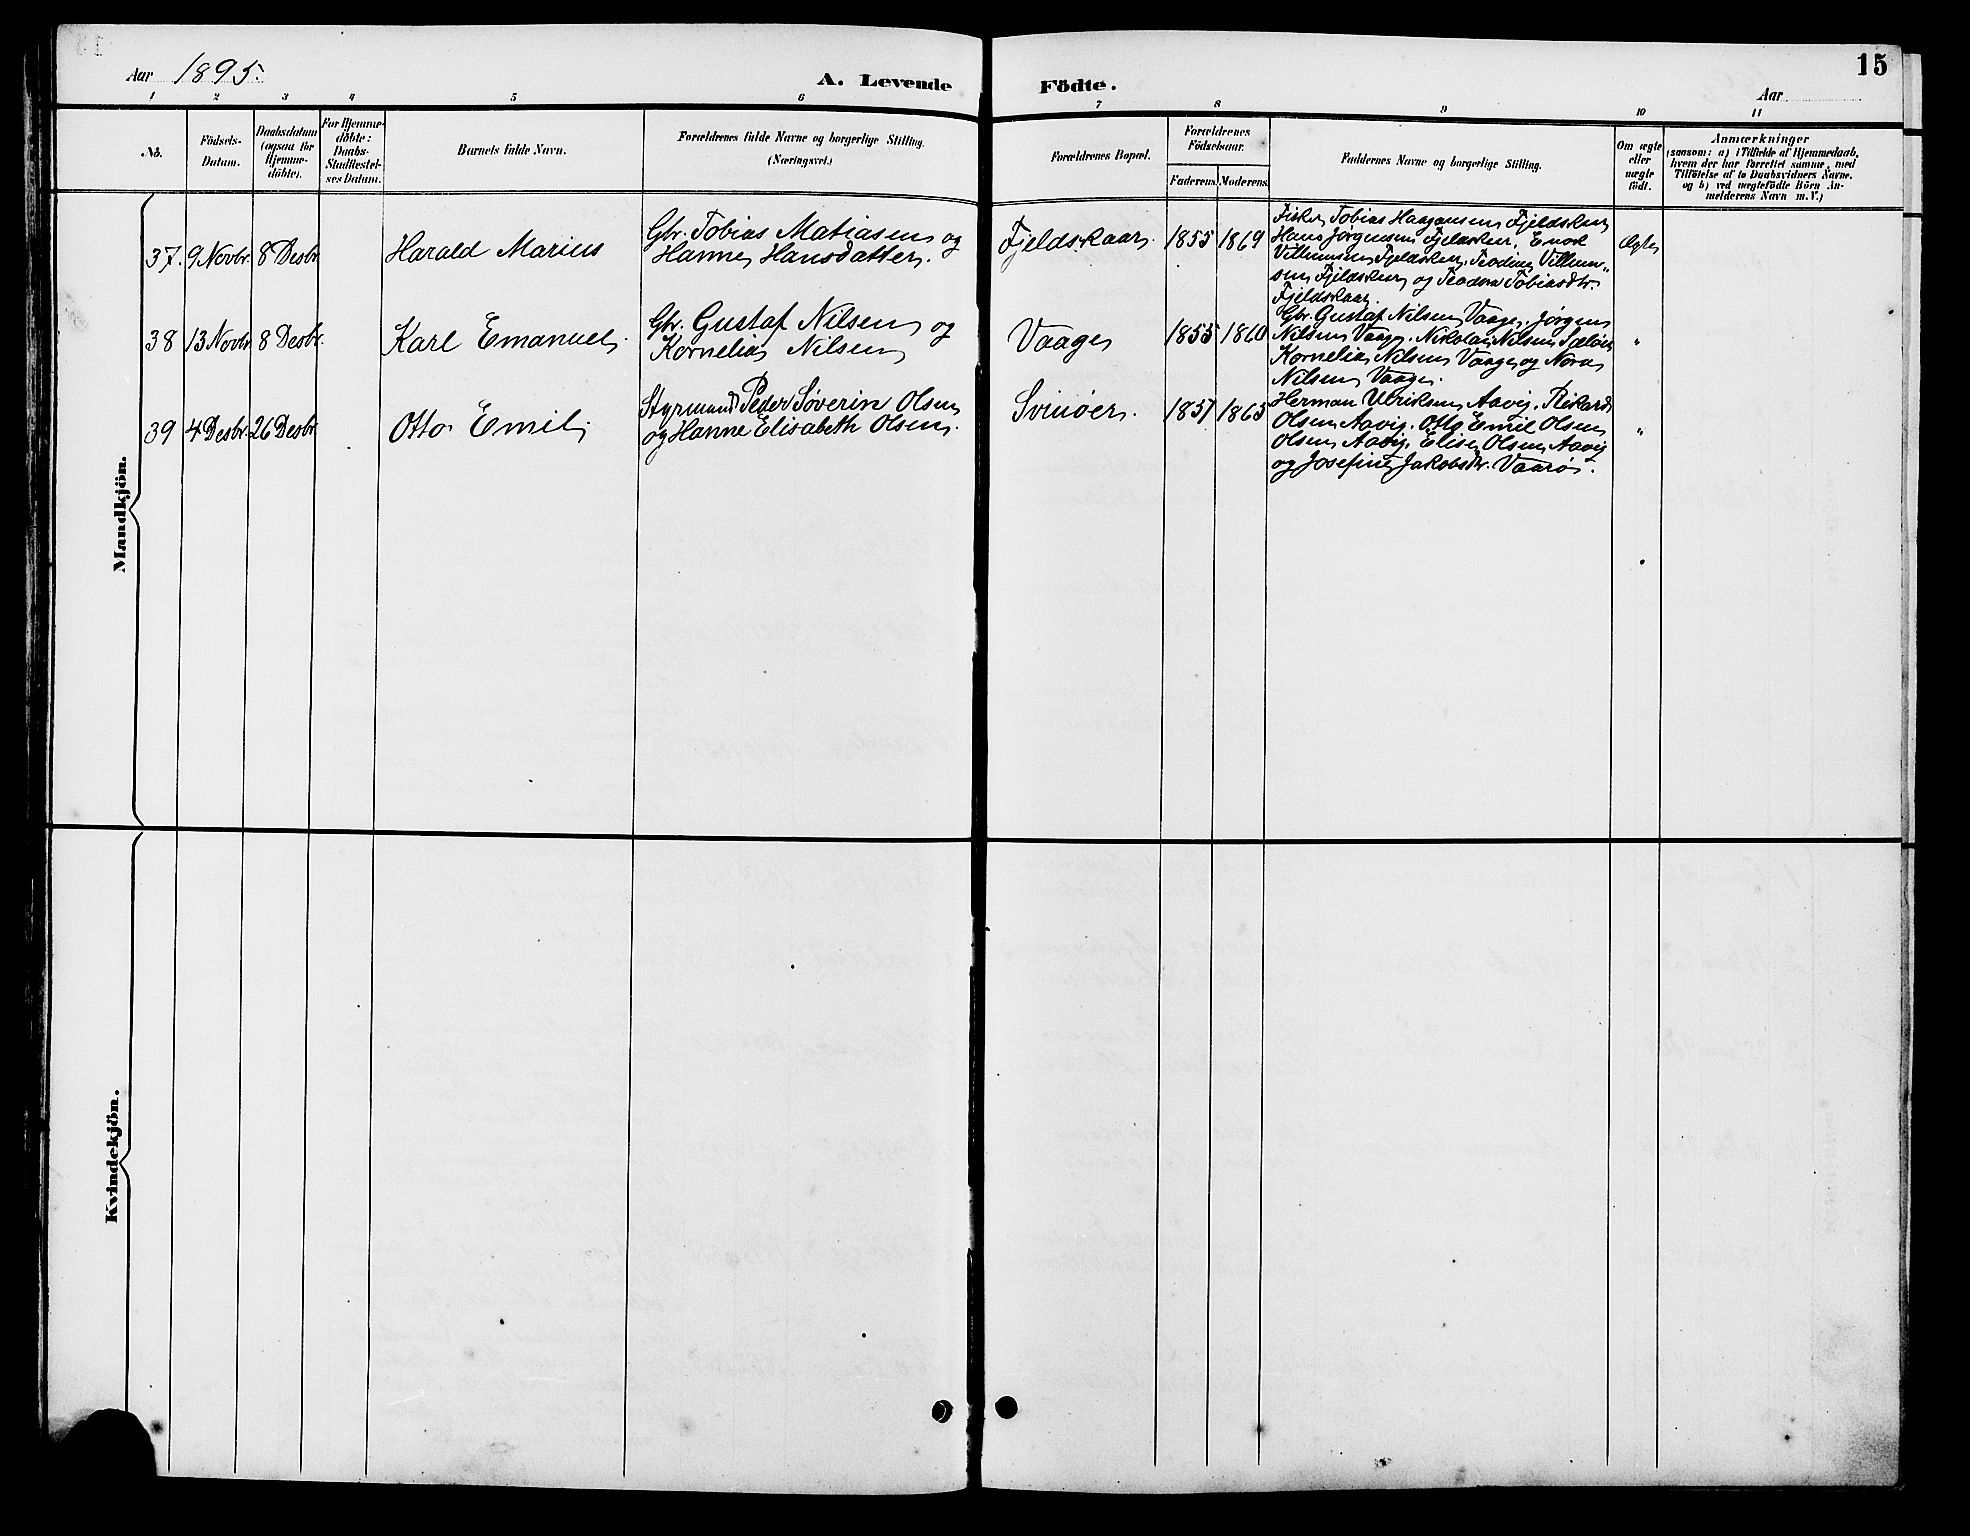 Aar 1895.
A. Levende Födte.
15
Aar
1 2 3 4 5 6 7 8 9 10 11
No.
Födsels-
Datum.
Daabsdatum
(ogsaa for
Hjemme-
döbte).
For Hjemme-
döbte:
Daabs-
Stadfæstel-
ses Datum.
Barnets fulde Navn.
Forældrenes fulde Navne og borgerlige Stilling.
(Næringsvei.)
Forældrenes Bopæl.
Forældrenes
Födselsaar.
Faderens. Moderens.
Faddernes Navne og borgerlige Stilling.
Om ægte
eller
uægte
født.
Anmærkninger
(saasom: a) i Tilfælde af Hjemmedaab,
hvem der har forrettet samme, med
Tilföielse af to Daabsvidners Navne,
og b) ved uægtefödte Börn An-
melderens Navn m.V.)
Mandkjön.
37. 9 Novbr. 8 Desbr. Harald Marius
Gbr. Tobias Matiasen og
Hanne Hansdatter.
Fjeldskaar. 1855 1869
Fisker Tobias Haagensen Fjeldskar
Hans Jørgensen Fjeldskar. Enok
Villumsen Fjeldskar. Teodine Villum-
sen Fjeldskar og Teodora Tobiasdtr.
Fjeldskaar.
Ægte
38 13 Novbr. 8 Desbr. Karl Emanuel.
Gbr. Gustaf Nilsen og
Kornelia Nilsen
Vaage 1855 1860
Gbr. Gustaf Nilsen Vaage. Jørgen
Nilsen Vaage. Nikolai Nilsen
Kornelia Nilsen Vaage og Nora
Nilsen Vaage.
"
39 4 Desbr. 26 Desbr. Otto Emil
Styrmand Peder Søverin Olsen
og Hanne Elisabeth Olsen.
Svinøer. 1857 1865
Herman Ulriksen Aavig. Rikard
Olsen Aavig. Otto Emil Olsen
Olsen Aavig. Elise Olsen Aavig
og Josefine Jakobsdtr. Vaarø.
"
Kvindekjön.